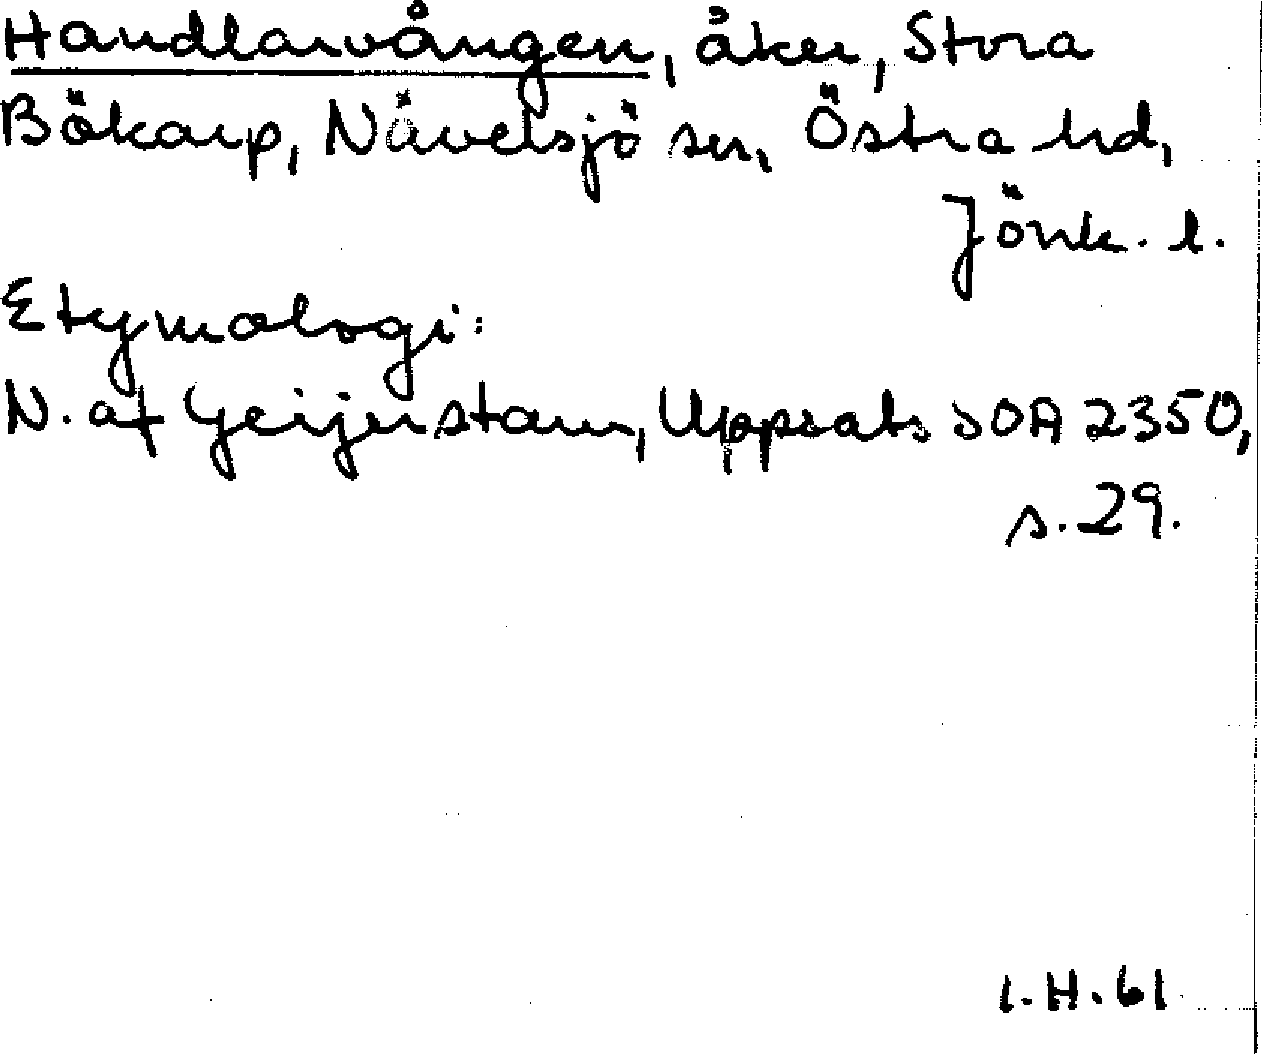 Handlarvången, åker, Stora
Bökarp, Nävelsjö sn, Östra hd,
Jönk. l.
Etymologi:
N. af Geijerstam, Uppsats SOA 2350,
s. 29.
I.H. 61